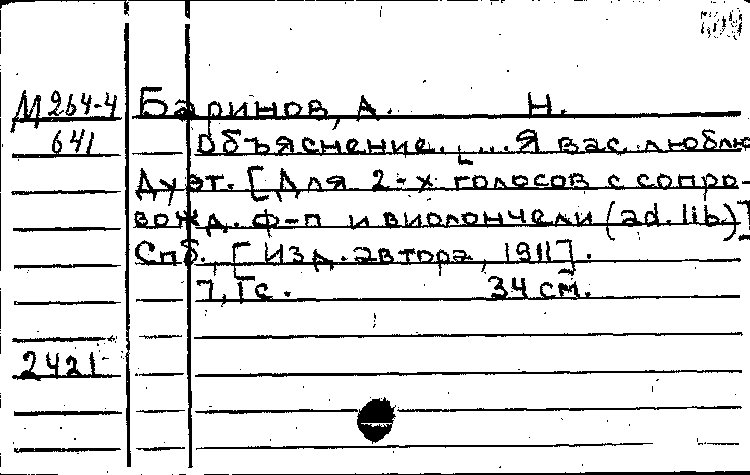 509
М 264-4 Баринов, А. Н.
641 Объяснение. ... Я вас люблю
Дуэт. [Для 2-х голосов с сопро-
вожд. ф-п и виолончели (ad. lib.)]
Спб., [Изд. автора, 1911].
7, 1 с. 34 см.
2421